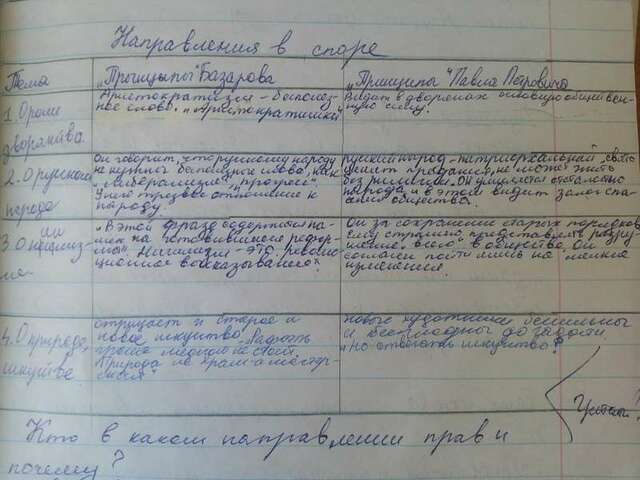 Направления в споре
Тема
„Принципы" Базарова
„Принципы" Павла Петровича
1. О роли
дворянства.
Аристократизм - бесполез-
ное слово. „Аристократишки"
Видит в дворянах основную обществен-
ную силу.
2. О русском
народе
Он говорит, что русскому народу
не нужны бесполезные слова, как
„либерализм", „прогресс".
У него трезвое отношение к
народу.
русский народ - патриархальный, свято
ценит предания, не может жить
без религии. Он умиляется отсталостью
народа, и в этом видит залог спа-
сения общества.
3. О нигилиз-
ме
„В этой фразе содержится на-
мек на готовившиеся рефор-
мы. Нигилизм - это револю-
ционное высказывание".
Он за сохранение старых порядков
ему страшно представить разру-
шение „всего" в обществе. Он
согласен пойти лишь на мелкие
изменения.
4. О природе,
искусстве
отрицает и старое и
новое искусство „Рафаэль
гроша медного не стоит.
Природа не храм а мастер-
ская".
новые художники бессильны
и бесплодны до гадости
Кто в каком направлении прав и
почему?